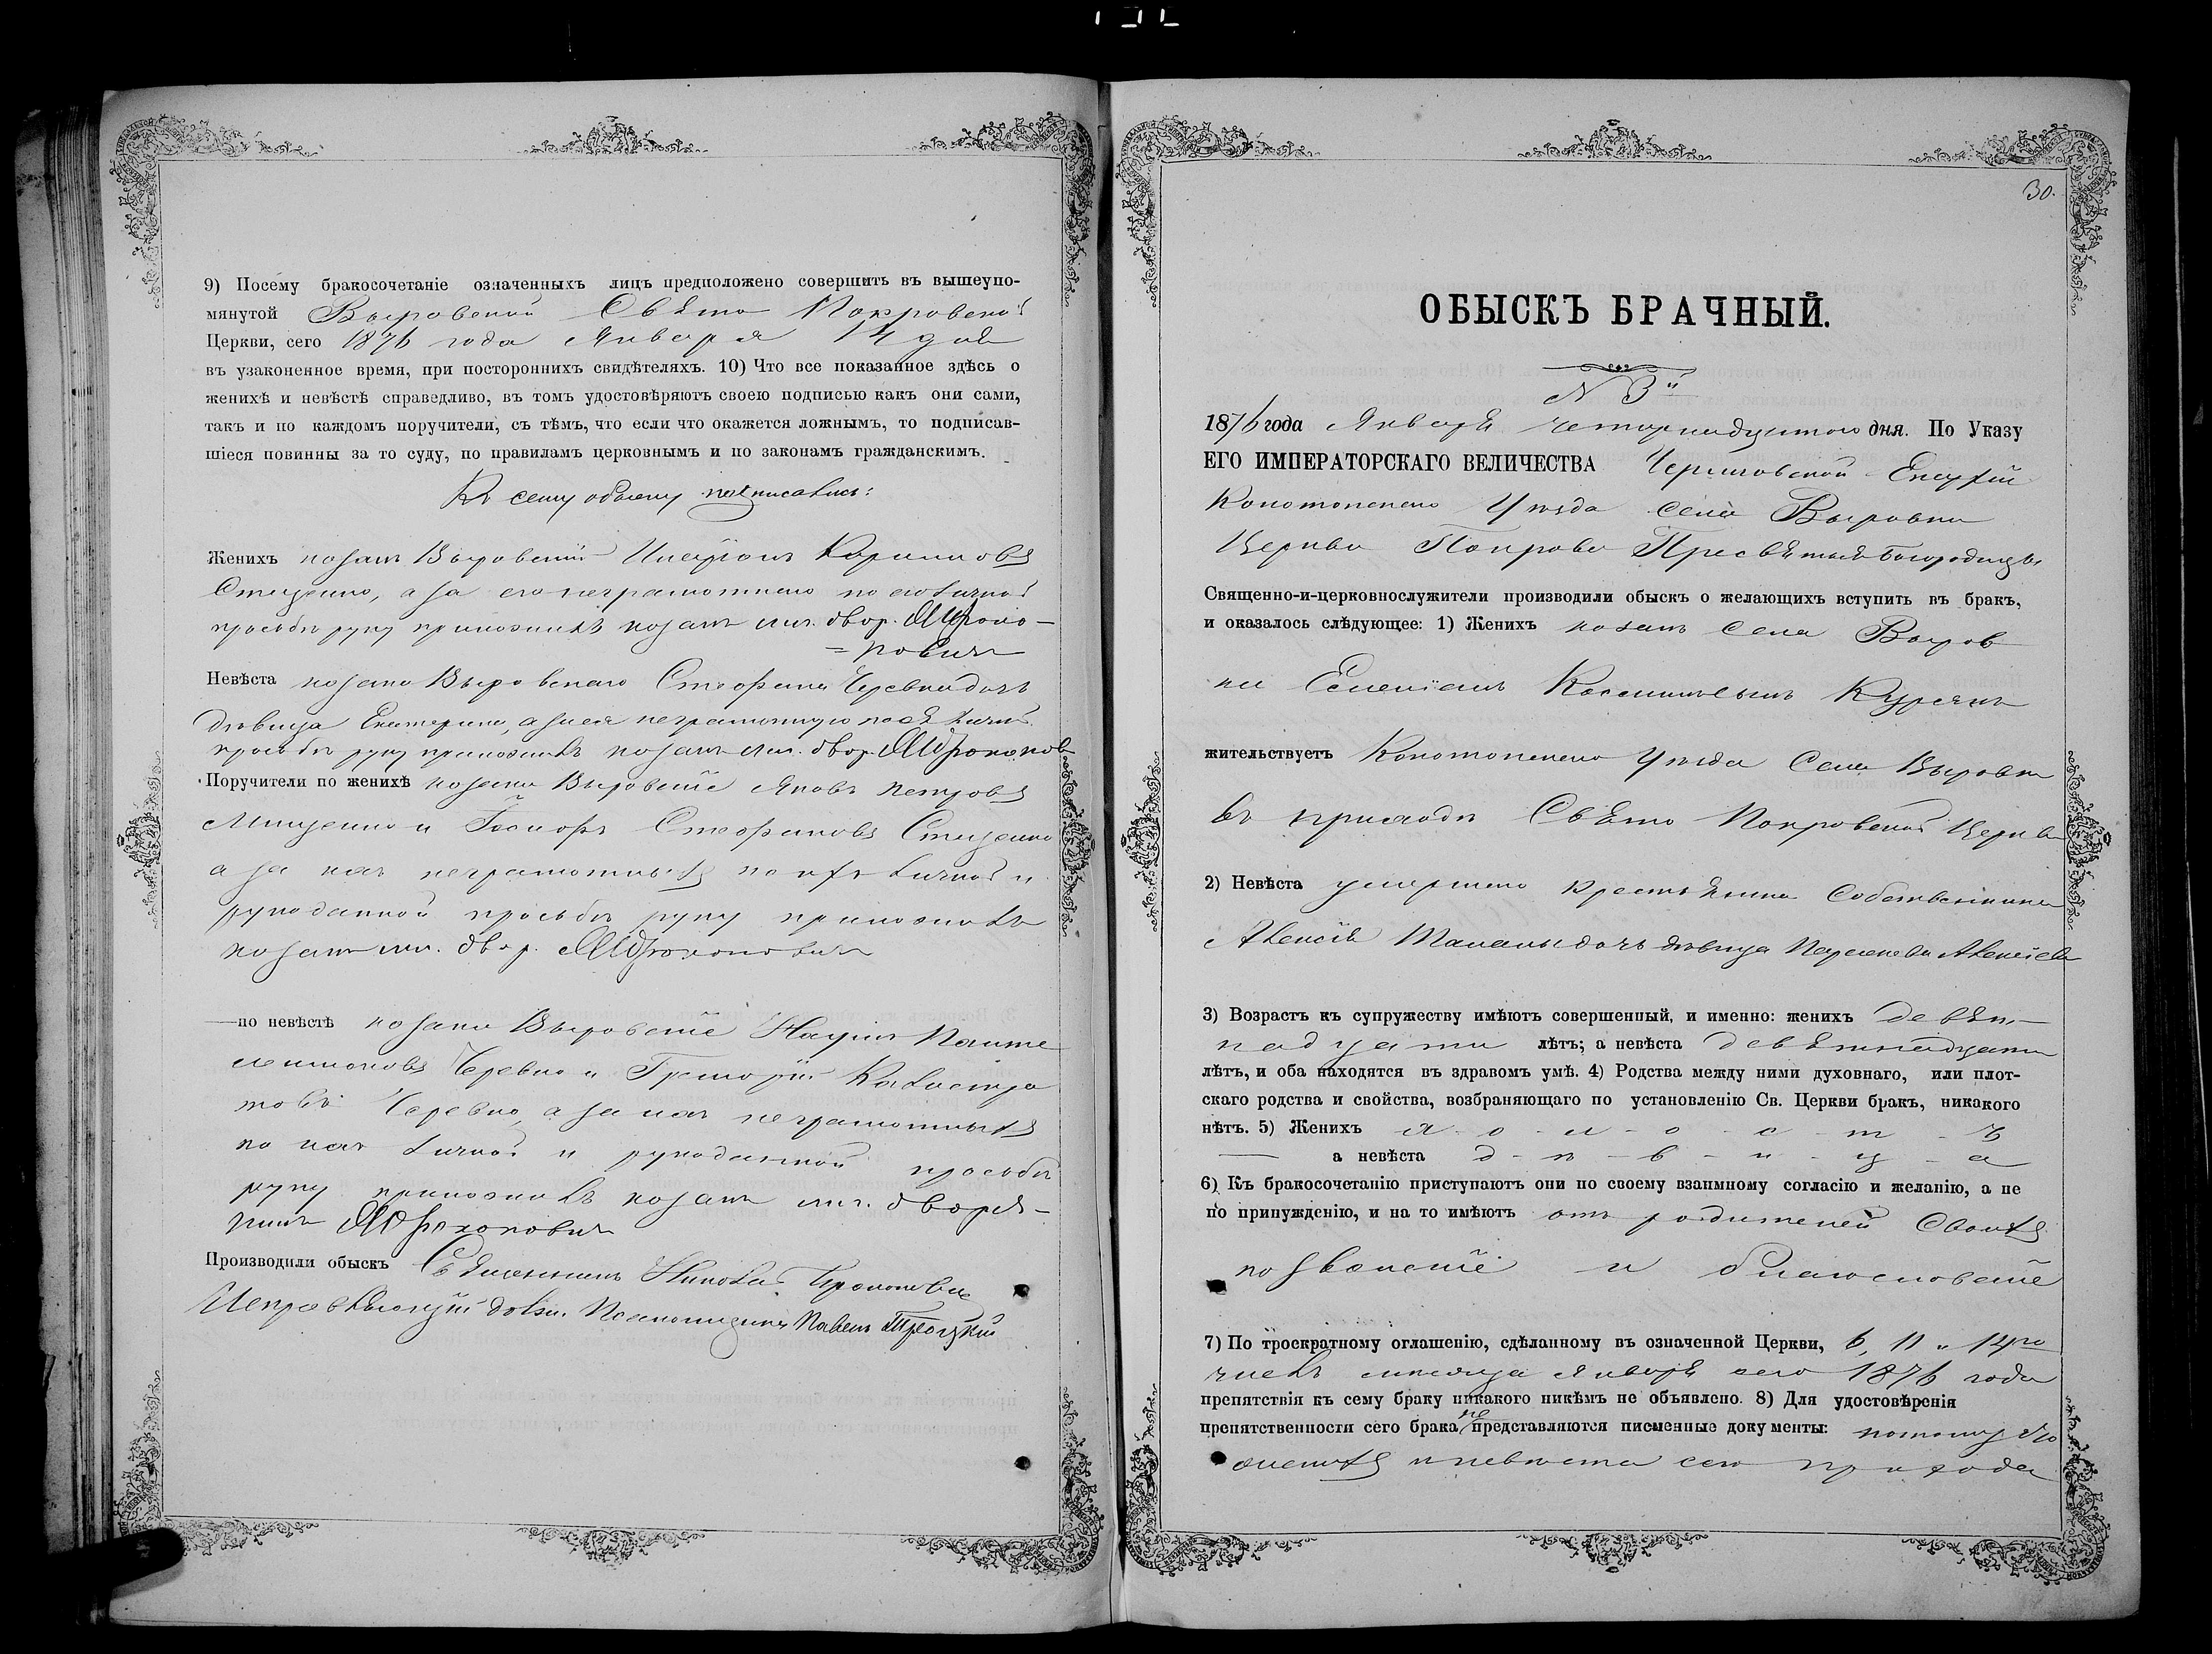 9) Посему бракосочетаніе означенныхъ лицъ предположено совершить въ вышеупо-
мянутой Выровской Свято Покровской
Церкви, сего 1876 года Января 14 дня
въ узаконенное время, при постороннихъ свидѣтеляхъ. 10) Что все показанное здѣсь о
женихѣ и невѣстѣ справедливо, въ томъ удостовѣряютъ своею подписью какъ они сами,
такъ и по каждомъ поручители, съ тѣмъ, что если что окажется ложнымъ, то подписав-
шіеся повинны за то суду, по правиламъ церковнымъ и по законамъ гражданскимъ.
Къ сему обыску подписались:
Женихъ козакъ Выровскій
Стиценко, а за его неграмотного по его личной
просьбѣ руку приложилъ козакъ двор.
Невѣста козака Выровскаго Стефана дочь
дѣвица Екатерина, а за нея неграмотную по ея личной
просьбѣ руку приложилъ козакъ двор.
Поручители по женихѣ козаки Выровскіе Яковъ Петровъ
Мищенко и Стефановъ Стиценко
а за ихъ неграмотныхъ по ихъ личной и
рукоданной просьбѣ руку приложилъ
козакъ двор.
— по невѣстѣ козаки Выровскіе Наумъ Панте
леимоновъ Черевко и Григорій Калистра
товъ Черевко, а за ихъ неграмотныхъ
по ихъ личной и рукоданной просьбѣ
руку приложилъ козакъ дворя-
нинъ
Производили обыскъ Священникъ Никола
Исправляющій долж. Псаломщика Павелъ Троцкій
30.
ОБЫСКЪ БРАЧНЫЙ.
N 3й
1876 года Января четырнадцатого дня. По Указу
ЕГО ИМПЕРАТОРСКАГО ВЕЛИЧЕСТВА Черниговской Епархіи
Конотопскаго Уѣзда села Выровки
Церкви Покрова Пресвятыя Богородицы
Священно-и-церковнослужители производили обыскъ о желающихъ вступить въ бракъ,
и оказалось слѣдующее: 1) Женихъ козакъ села Выров
ки
жительствуетъ Конотопскаго Уѣзда Села Выровки
въ приходѣ Свято Покровской Церкви
2) Невѣста умершаго крестьянина Собственника
Алексія дочь дѣвица Алексіева
3) Возрастъ къ супружеству имѣютъ совершенный, и именно: женихъ девят-
надцати лѣтъ; а невѣста девятнадцати
лѣтъ, и оба находятся въ здравомъ умѣ. 4) Родства между ними духовнаго, или плот-
скаго родства и свойства, возбраняющаго по установленію Св. Церкви бракъ, никакого
нѣтъ. 5) Женихъ х - о - л - о - с - т - ъ
— а невѣста д - ѣ - в - и - ц - а
6) Къ бракосочетанію приступаютъ они по своему взаимному согласію и желанію, а не
по принужденію, и на то имѣютъ отъ родителей своихъ
позволеніе и благословеніе
7) По троекратному оглашенію, сдѣланному въ означенной Церкви, 6, 11 и 14го
числъ мѣсяца Января сего 1876 года
препятствія къ сему браку никакого никѣмъ не объявлено. 8) Для удостовѣренія
препятственности сего брака не представляются писменные документы: потому что
женихъ и невѣста сего прихода